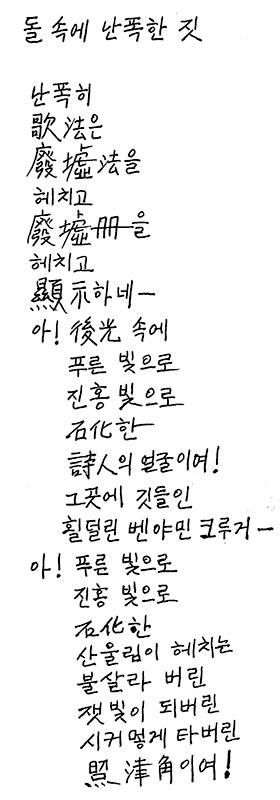 돌 속에 난폭한 짓
난폭히
歌法은
廢墟法을
헤치고
廢墟冊을
헤치고
顯示하네ー
아! 後光 속에
푸른 빛으로
진홍 빛으로
石化한
詩人의 얼굴이여!
그곳에 깃들인
휠덜린 벤야민 크루거ー
아! 푸른 빛으로
진홍 빛으로
石化한
산울림이 헤치는
불살라 버린
잿빛이 되버린
시커멓게 타버린
照津角이여!